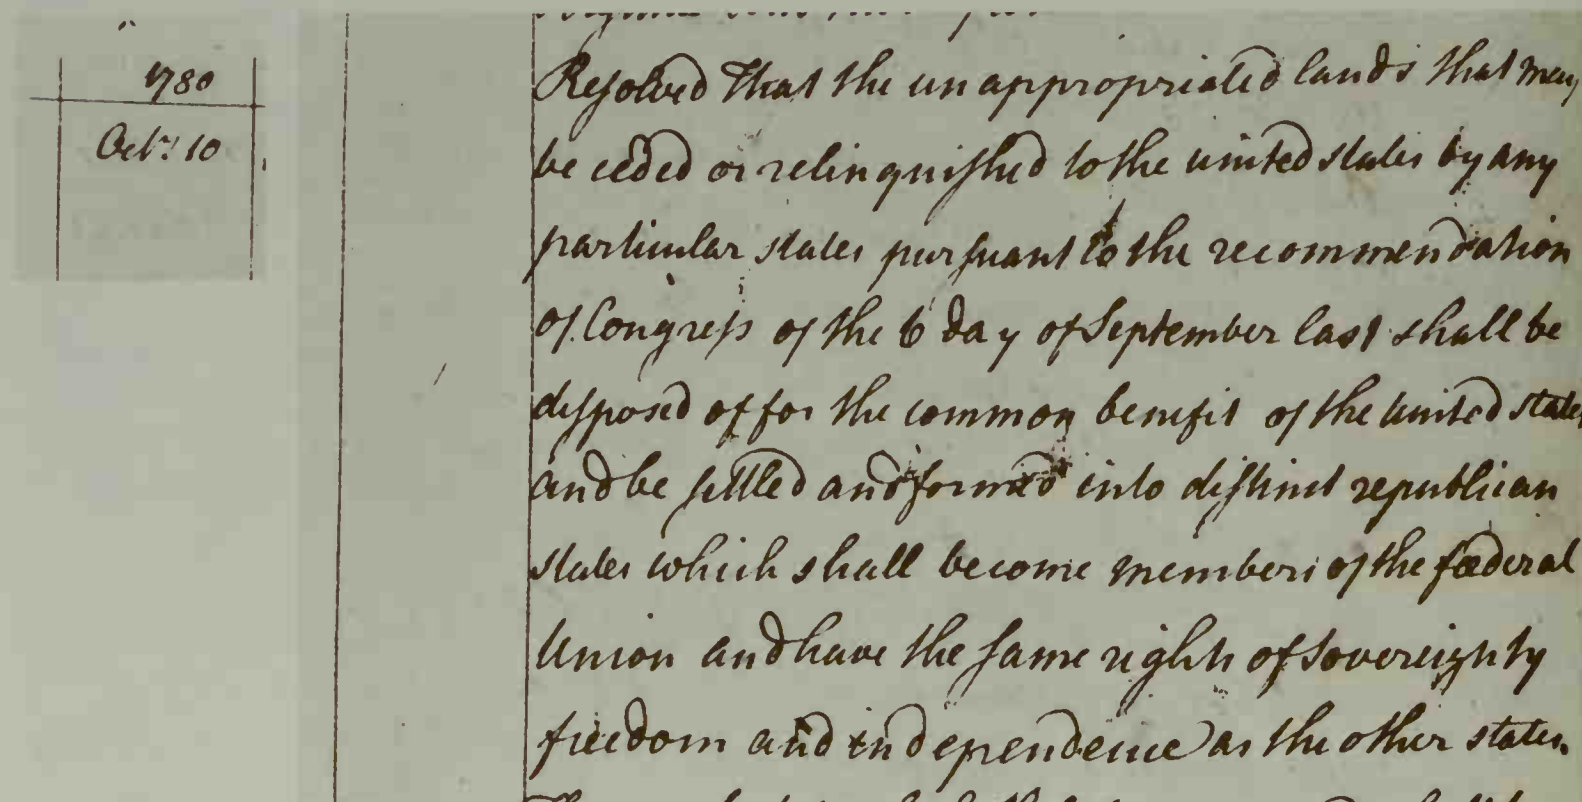 1780
Octr. 10
Resolved That the unappropriated lands that may
be ceded or relinquished to the united states by any
particular states pursuant to the recommendation
of Congress of the 6 day of September last shall be
disposed of for the common benefit of the united states
and be settled and formed into distinct republican
states which shall become members of the fœderal
Union and have the same rights of sovereignty
freedom and independence as the other states.